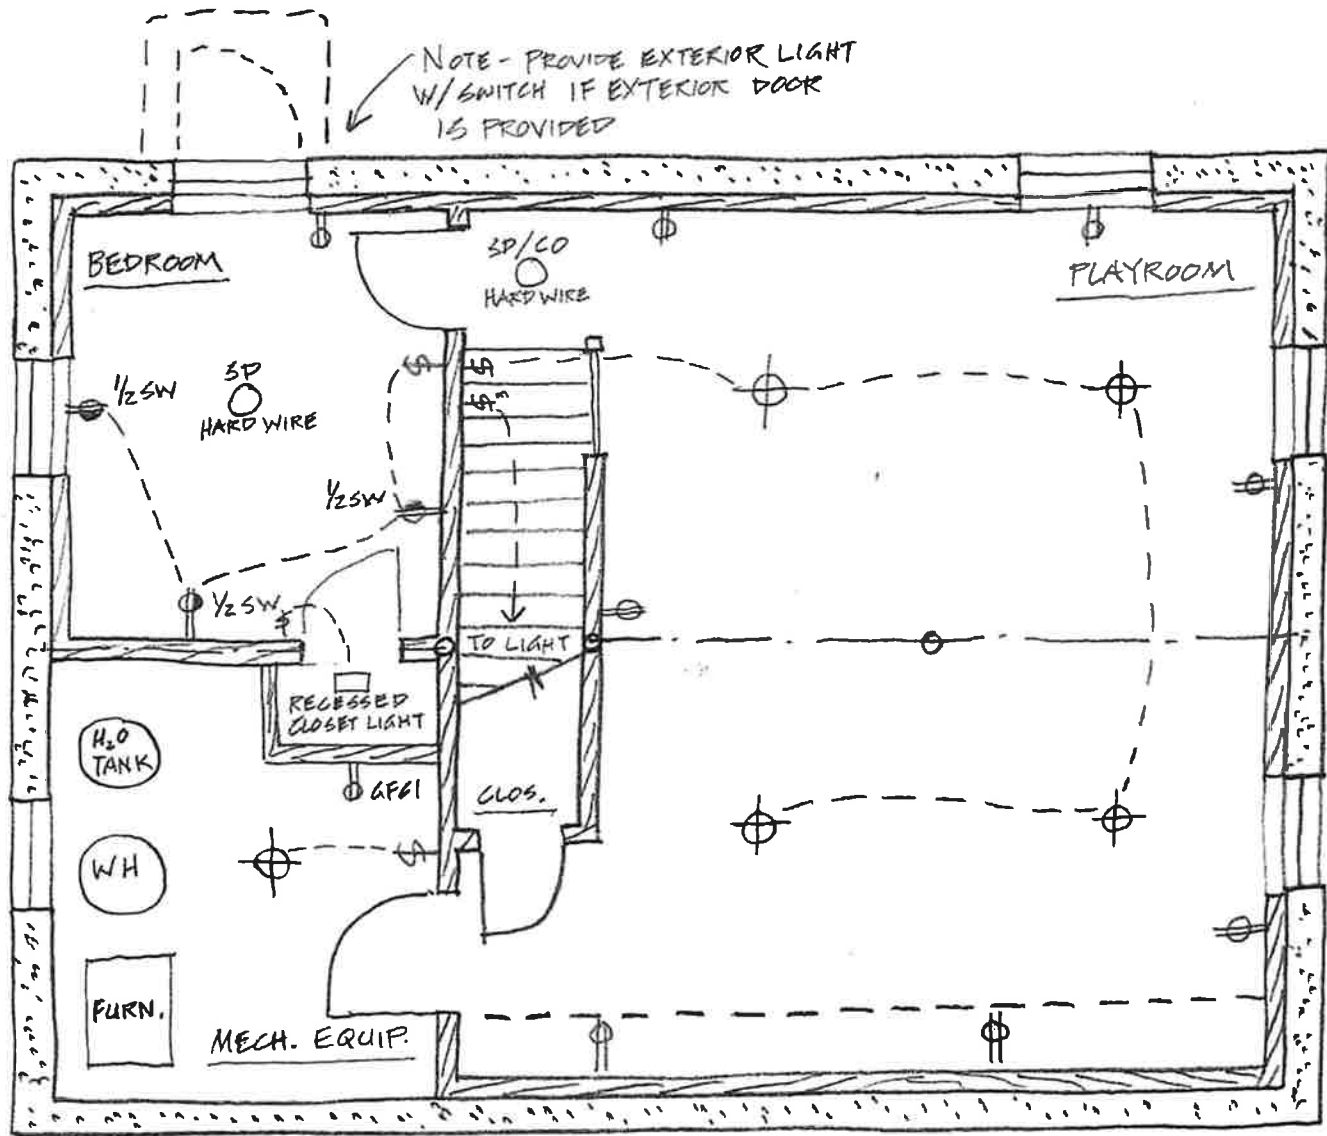 NOTE - PROVIDE EXTERIOR LIGHT
W/ SWITCH IF EXTERIOR DOOR
IS PROVIDED
BEDROOM
SD/CO
HARD WIRE
PLAYROOM
1/2 SW
SD
HARD WIRE
$
$
$3
1/2 SW
1/2 SW
$
TO LIGHT
RECESSED
CLOSET LIGHT
H2O
TANK
GFGI
CLOS.
WH
$
FURN.
MECH. EQUIP.